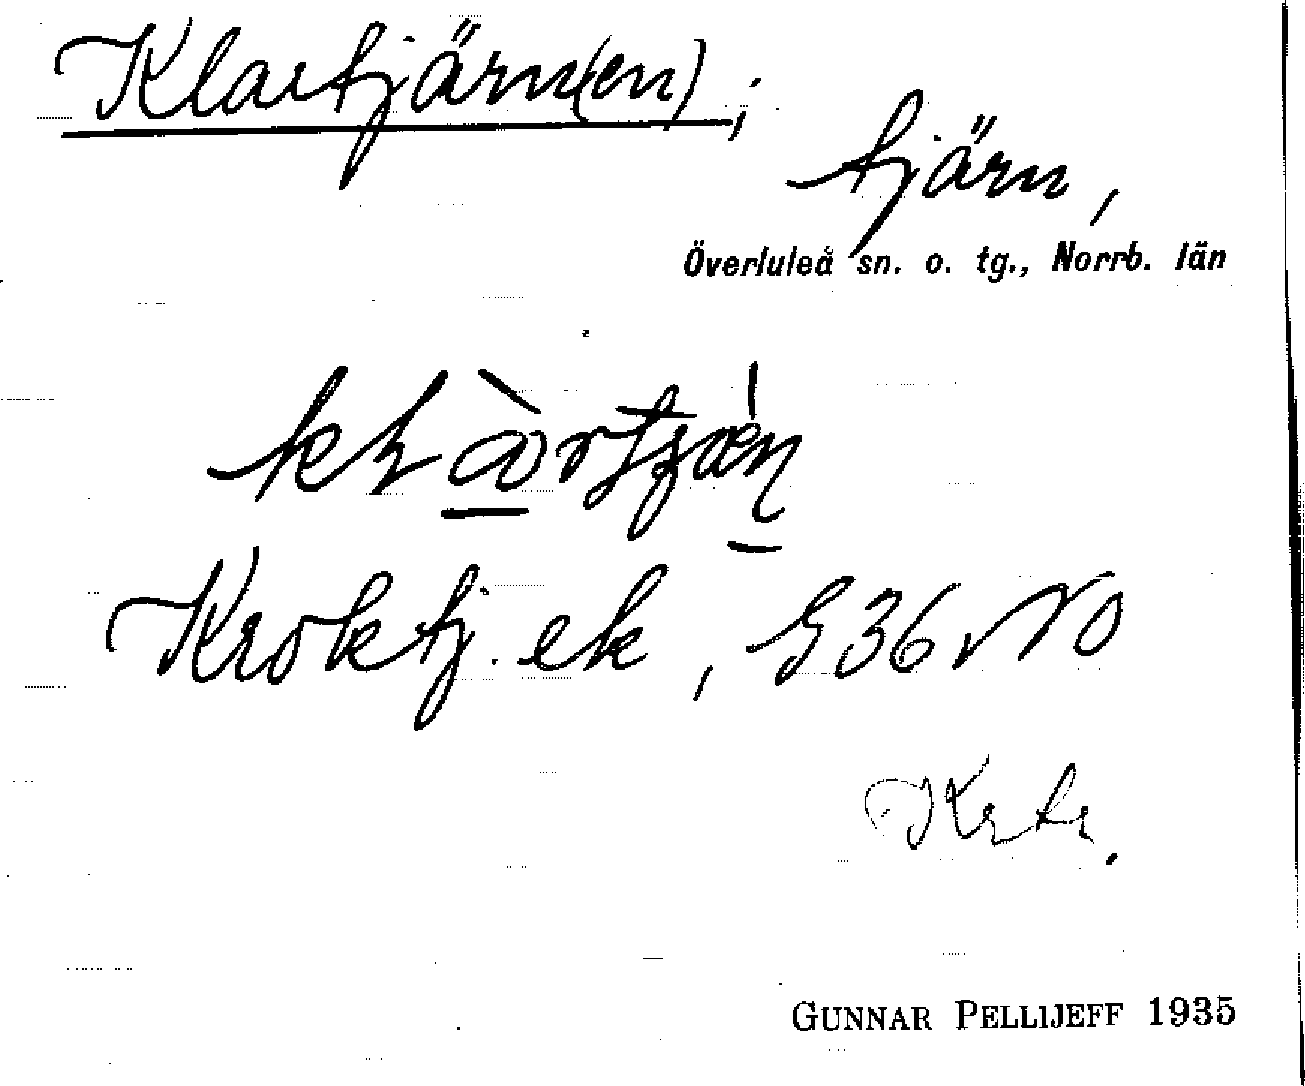 Klartjärn(en);
tjärn,
Överluleå sn. o. tg., Norrb. län
Kroktj. ek, G36 NO
Krtr.
GUNNAR PELLIJEFF 1935